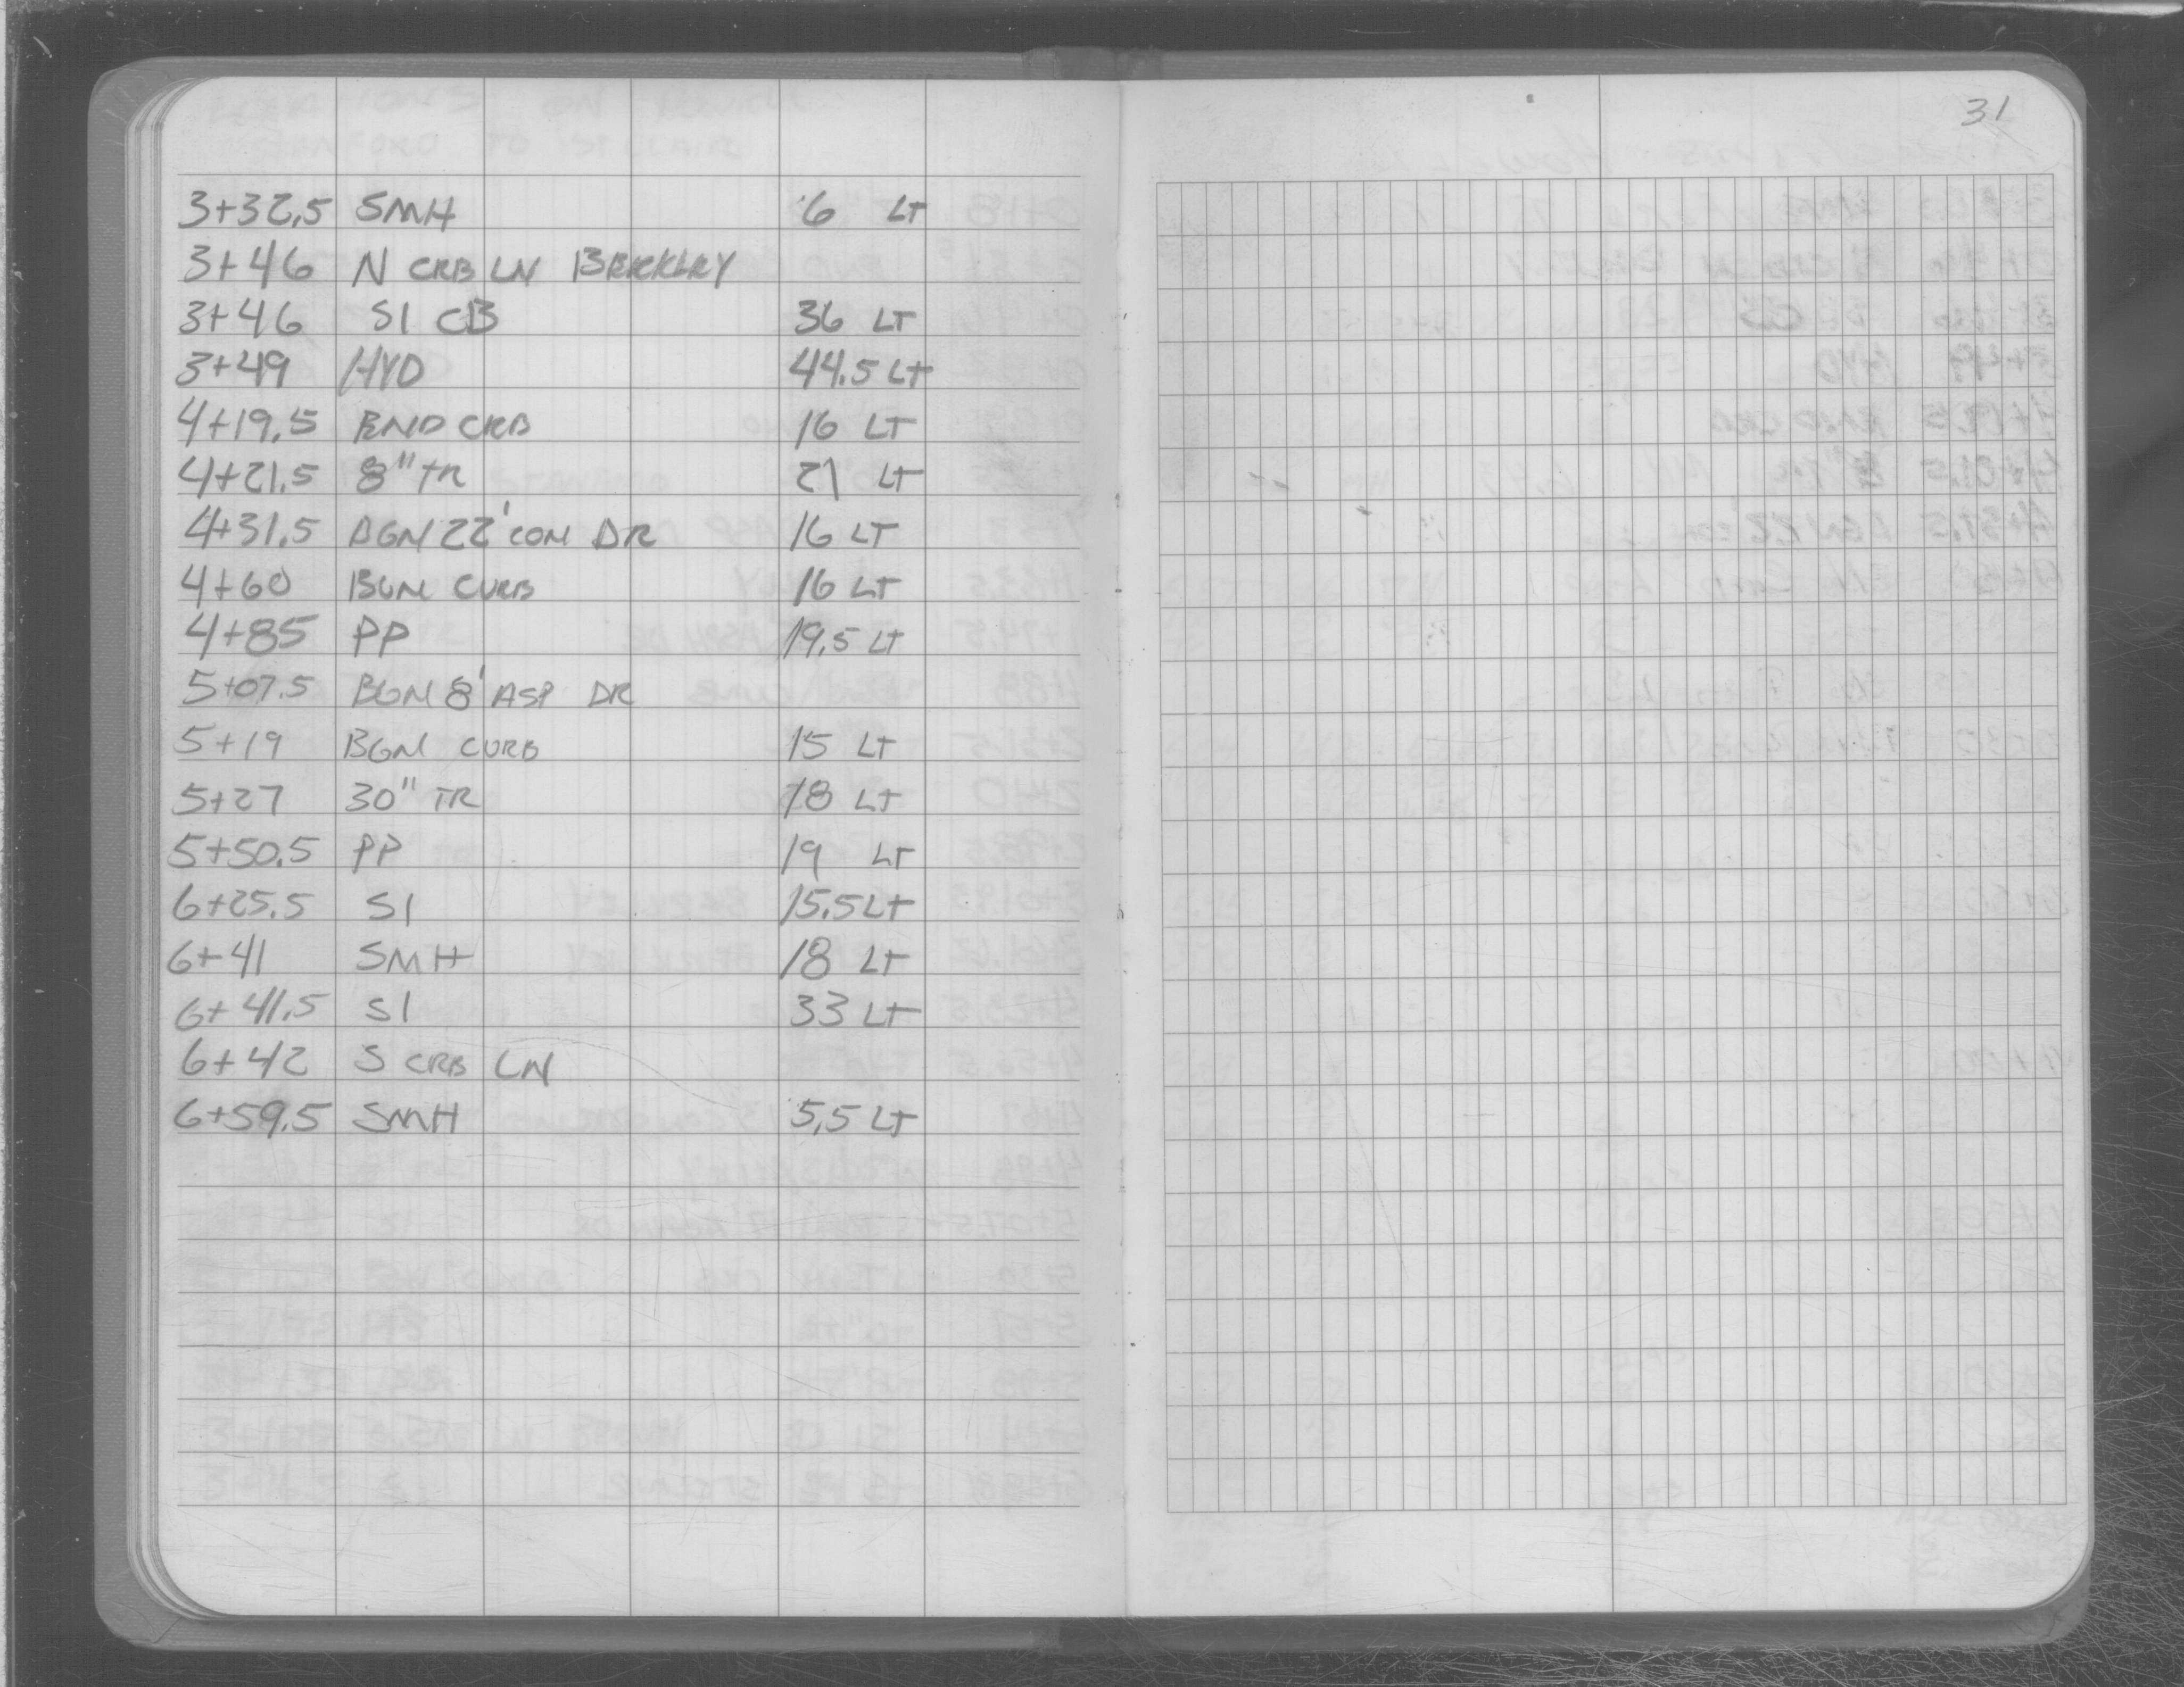 31
3+32.5 SMH 6 LT
3+46 N CRB LN BERKLEY
3+46 SI CB 36 LT
3+49 HYD 44.5 LT
4+19.5 END CRB 16 LT
4+21.5 8" TR 21 LT
4+31.5 BGN 22' CON DR 16 LT
4+60 BGN CURB 16 LT
4+85 PP 19.5 LT
5+07.5 BGN 8' ASP DR
5+19 BGN CURB 15 LT
5+27 30" TR 18 LT
5+50.5 PP 19 LT
6+25.5 SI 15.5 LT
6+41 SMH 18 LT
6+41.5 SI 33 LT
6+42 S CRB LN
6+59.5 SMH 5.5 LT